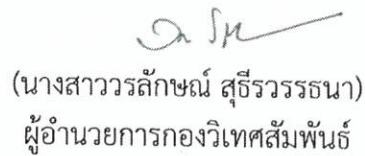 (นางสาววรลักษณ์ สุธีรวรรธนา)
ผู้อำนวยการกองวิเทศสัมพันธ์